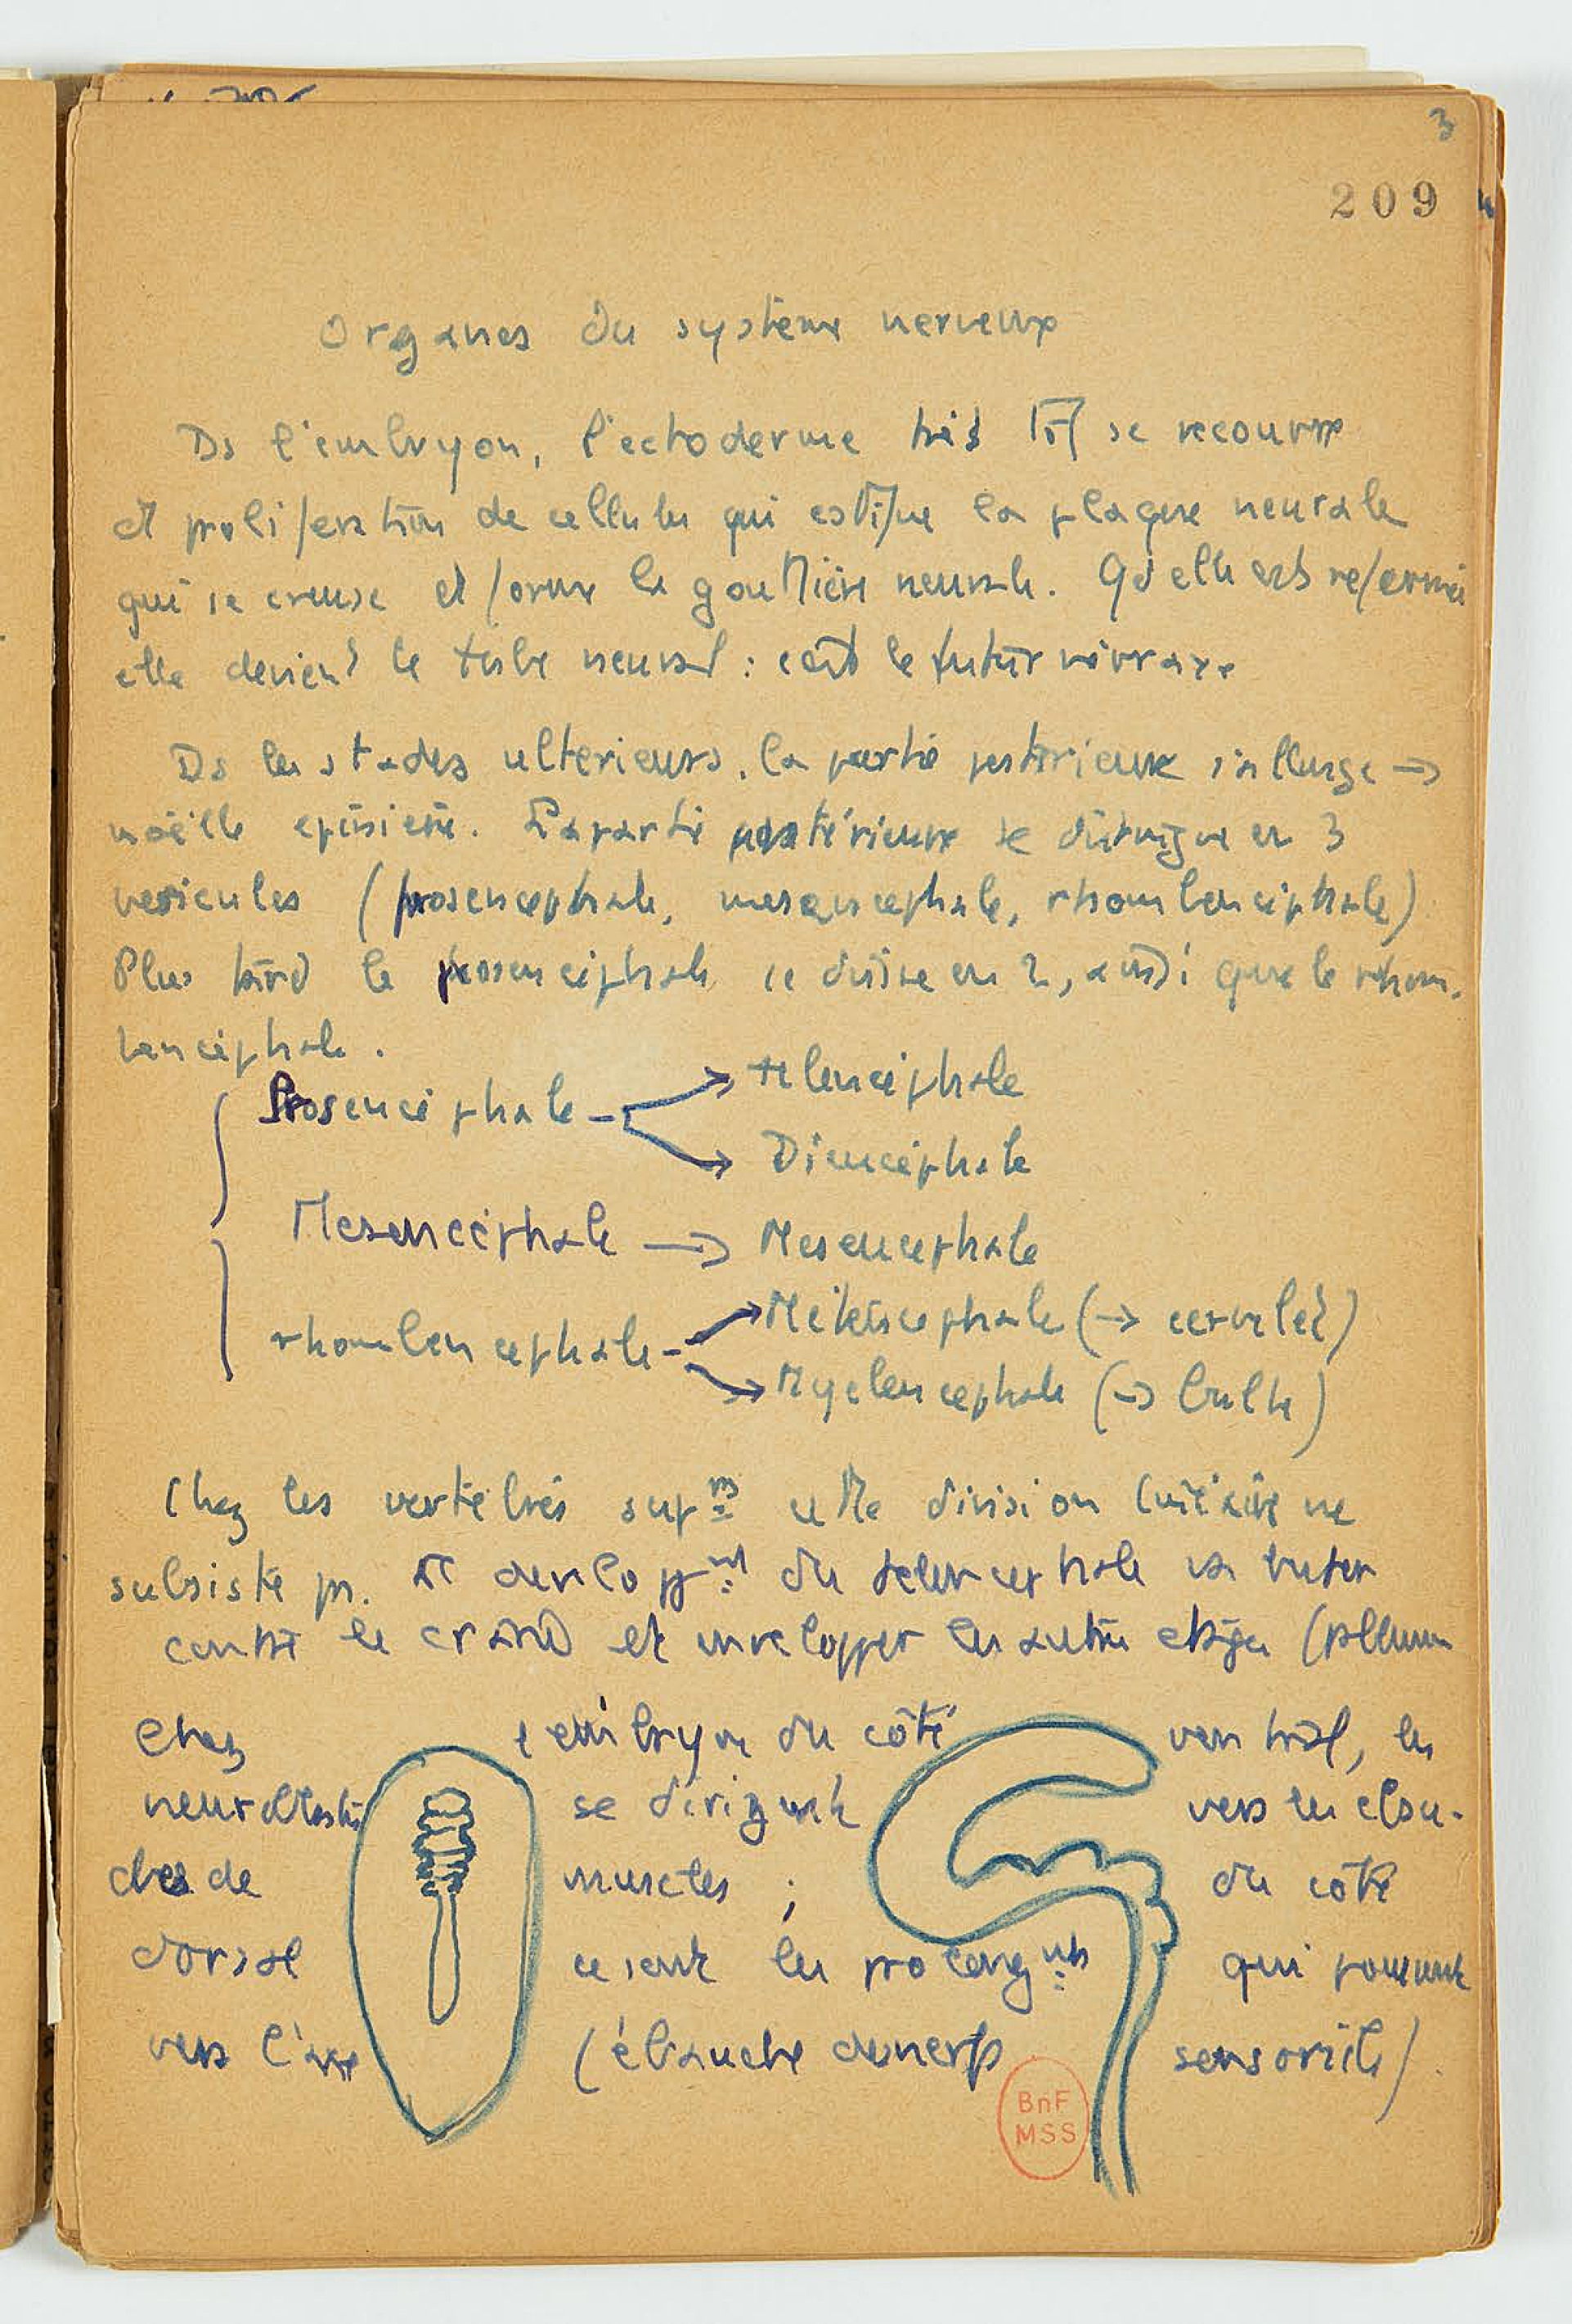 3
209
Organes du système nerveux
Ds l'embryon, l'ectoderme très tôt se recouvre
et prolifération de cellules qui constitue la plaque neurale
qui se creuse et forme la gouttière neurale. Qd elle est refermée
elle devient le tube neural : c'est le futur névraxe
Ds les stades ulterieurs, la partie postérieure s'allonge →
moëlle epinière. La partie antérieure se distingue en 3
vesicules (prosencephale, mesencephale, rhombencéphale)
Plus tard le prosencéphale se divise en 2, aussi que le rhom-
bencéphale.
Prosencéphale → telencéphale
Diencéphale
Mesencéphale → Mesencephale
rhombencephale → Métencephale (→ cervelet)
Myelencephale (→ bulbe)
Chez les vertébrés suprs cette division linéaire ne
subsiste ps. Le developpnt du telencephale va buter
contre le crâne et envelopper les autres etages (pallium
Chez l'embryon du côté ventral, les
neuroblastes se dirigent vers les ébau-
ches de muscles ; du côté
dorsal ce sont les prolongnts qui poussent
vers l'axe (ébauche de nerfs sensoriels)
BnF
MSS